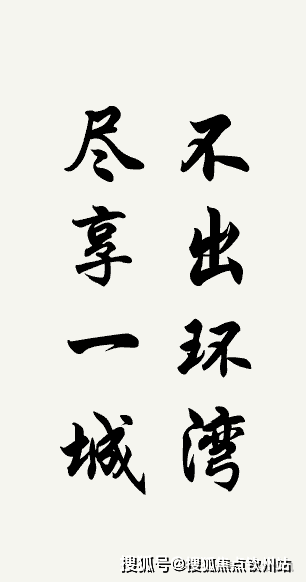 不出环湾
尽享一城
搜狐号@搜狐焦点钦州站